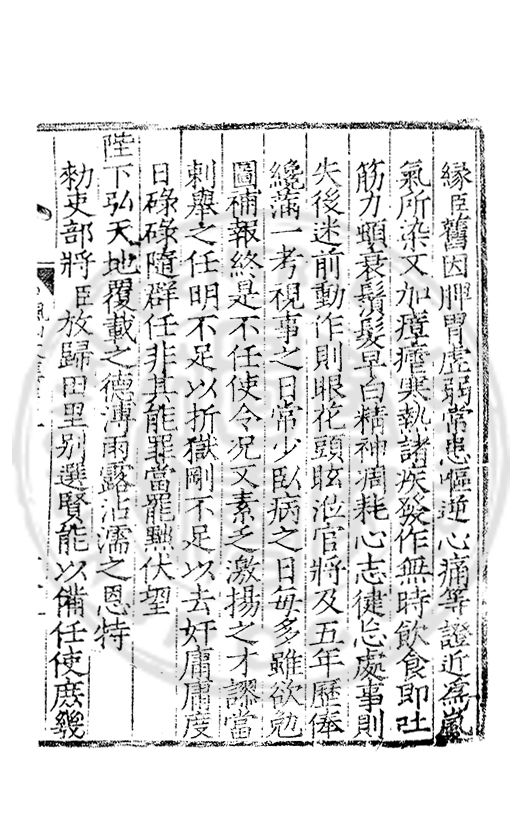 緣臣舊因脾胃虛弱常患嘔逆心痛等證近爲嵐
氣所染又加瘴瘧寒執諸疾發作無時飲食即吐
筋力頓衰鬚髮早白精神凋耗心志健忘處事則
失後迷前動作則眼花頭眩涖官將及五年歷俸
纔滿一考視事之日常少臥病之日每多雖欲勉
圖補報終是不任使令况又素乏激揚之才謬當
刺舉之任明不足以折獄剛不足以去奸庸庸度
日碌碌隨群任非其能罪當罷黜伏望
陛下弘天地覆載之德溥雨露沾濡之恩特
勑吏部將臣放歸田里別選賢能以備任使庶幾